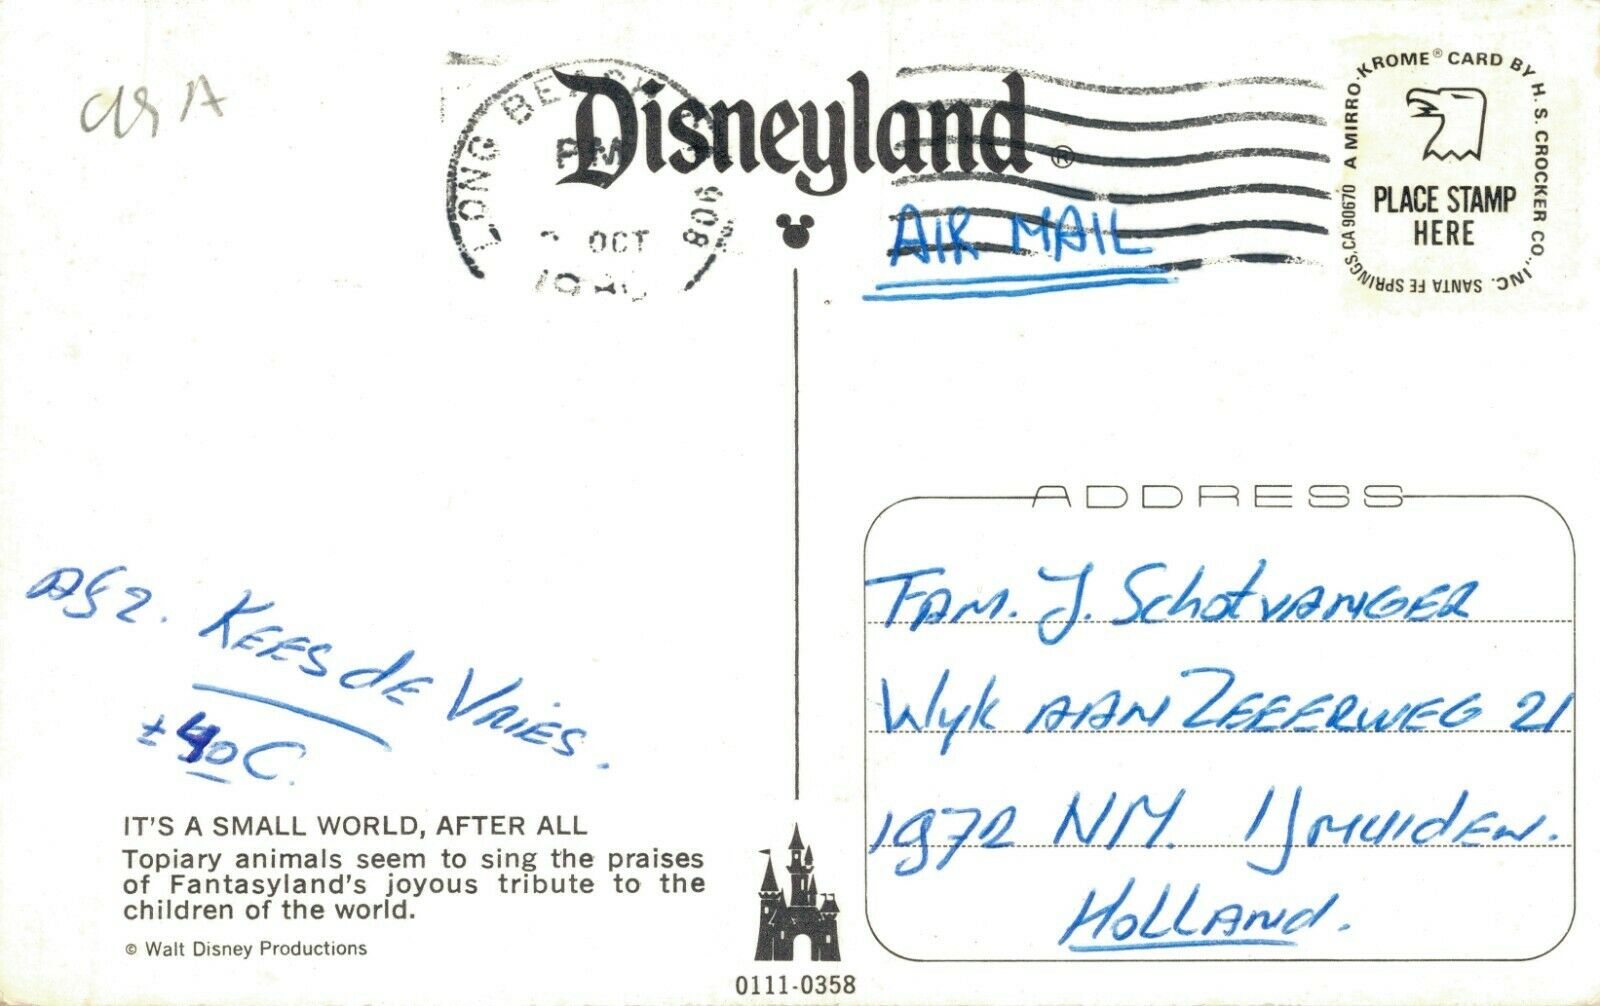 USA
LONG BEACH, CA
PM
OCT
908
Disneyland®
AIR MAIL
A MIRRO-KROME® CARD BY H. S. CROCKER CO., INC. SANTA FE SPRINGS, CA 90670
PLACE STAMP
HERE
Afz. KEES de VRIES.
± 40 C.
IT'S A SMALL WORLD, AFTER ALL
Topiary animals seem to sing the praises
of Fantasyland's joyous tribute to the
children of the world.
© Walt Disney Productions
0111-0358
ADDRESS
FAM. J. SchotVANGER
Wyk AAN ZEEERWEG 21
1972 NM. IJMUIDEN.
HOLLAND.